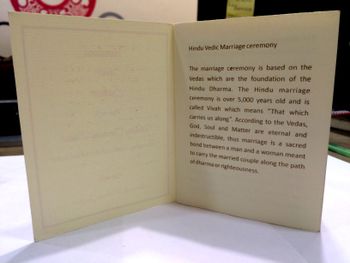 Hindu Vedic Marriage ceremony
The marriage ceremony is based on the
Vedas which are the foundation of the
Hindu Dharma. The Hindu marriage
ceremony is over 5,000 years old and is
called Vivah which means "That which
carries us along". According to the Vedas,
God, Soul and Matter are eternal and
indestructible, thus marriage is a sacred
bond between a man and a woman meant
to carry the married couple along the path
of dharma or righteousness.